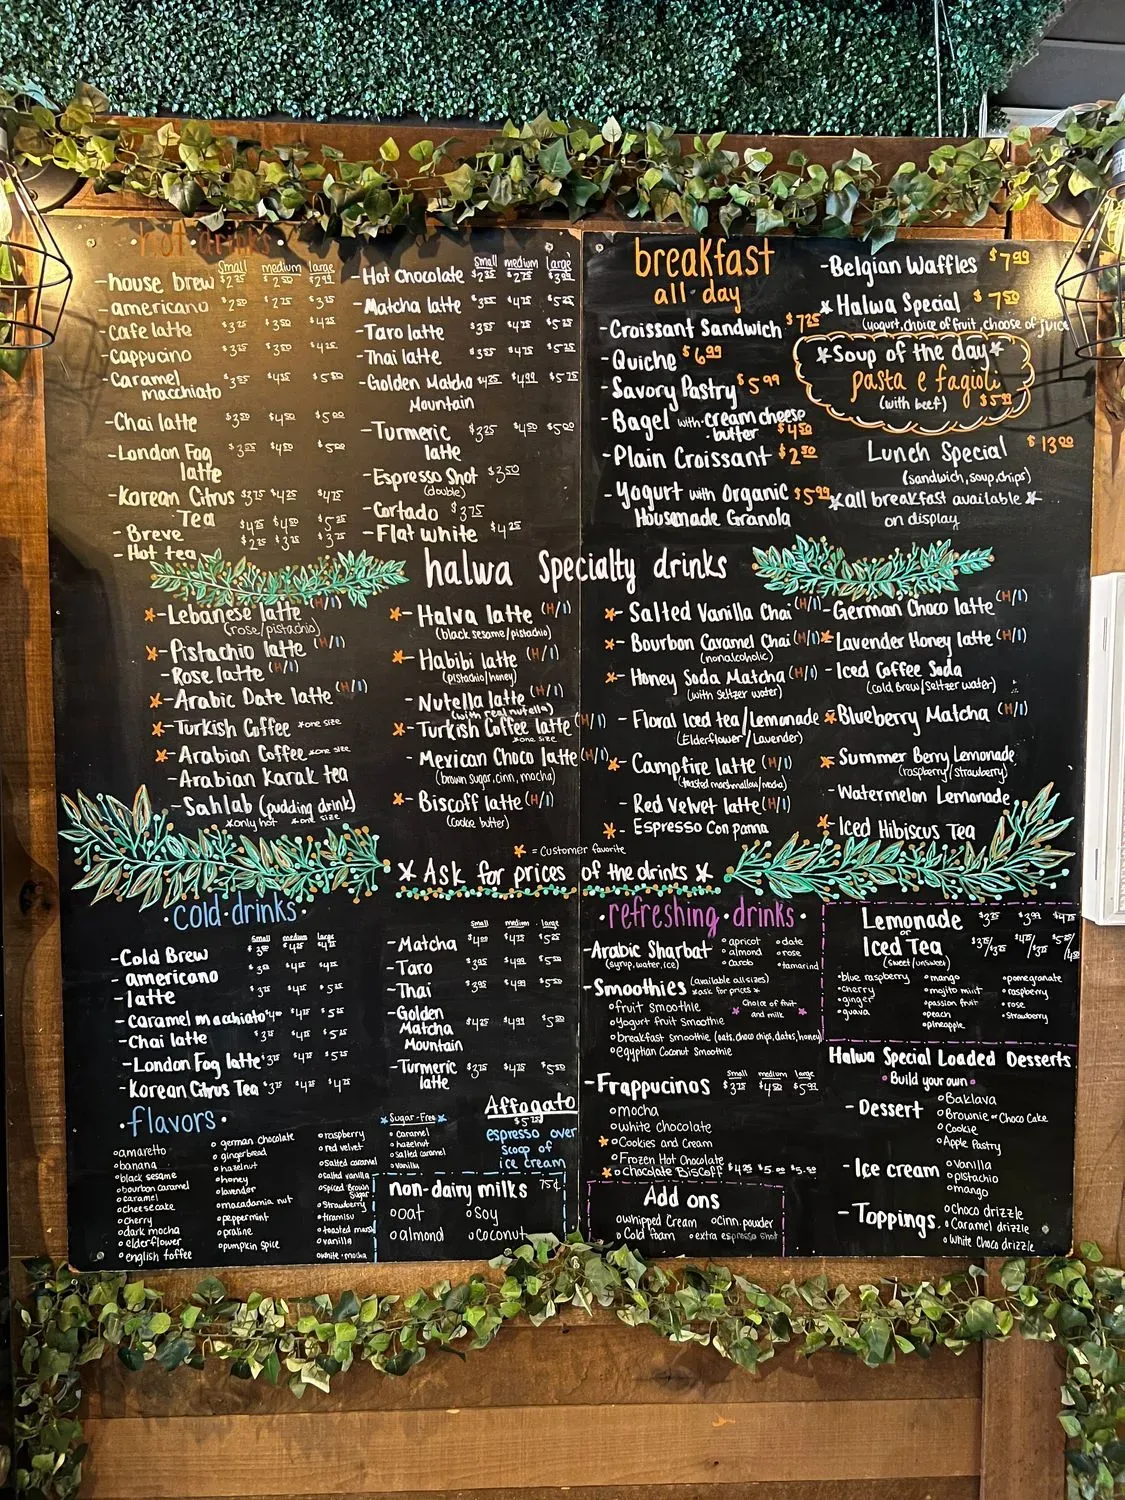 ·hot·drinks·
small medium large
-house brew $2.25 $2.50 $2.99
-americano $2.50 $2.75 $3.25
-Cafe latte $3.25 $3.50 $4.25
-Cappucino $3.25 $3.50 $4.25
-Caramel
macchiato
-Chai latte $3.50 $4.50 $5.00
-London Fog
latte $3.50 $4.50 $5.00
-Korean Citrus
Tea $3.75 $4.25 $4.75
-Breve
-Hot tea
small medium large
-Hot Chocolate
-Matcha latte
-Taro latte
-Thai latte
-Golden Matcha
Mountain
-Turmeric
latte
-Espresso Shot $3.50
(double)
-Cortado $3.75
-Flat white $4.25
breakfast
all day
-Croissant Sandwich $7.25
-Quiche $6.99
-Savory Pastry $5.99
-Bagel with-cream cheese
-butter $4.50
-Plain Croissant $2.50
-Yogurt with Organic $5.99
Housemade Granola
-Belgian Waffles $7.99
*Halwa Special $7.50
(yogurt, choice of fruit, choose of juice
*Soup of the day*
pasta e fagioli
(with beef) $5.99
Lunch Special $13.00
(sandwich, soup, chips)
*all breakfast available*
on display
halwa Specialty drinks
*-Lebanese latte (H/I)
(rose/pistachio)
*-Pistachio latte (H/I)
-Rose latte (H/I)
*-Arabic Date latte (H/I)
*-Turkish Coffee *one size
*-Arabian Coffee *one size
-Arabian Karak tea
-Sahlab (pudding drink)
*only hot *one size
*-Halva latte (H/I)
(black sesame/pistachio)
*-Habibi latte (H/I)
(pistachio/honey)
-Nutella latte (H/I)
(with real nutella)
*-Turkish Coffee latte (H/I)
*one size
-Mexican Choco latte (H/I)
(brown sugar, cinn, mocha)
*-Biscoff latte (H/I)
(cookie butter)
*-Salted Vanilla Chai (H/I)
*-Bourbon Caramel Chai (H/I)
(nonalcoholic)
*-Honey Soda Matcha (H/I)
(with seltzer water)
-Floral Iced tea/Lemonade
(Elderflower/Lavender)
*-Campfire latte (H/I)
(toasted marshmallow/mocha)
-Red Velvet latte (H/I)
*-Espresso Con panna
-German Choco latte (H/I)
*-Lavender Honey latte (H/I)
-Iced Coffee Soda
(cold Brew/Seltzer water)
*-Blueberry Matcha (H/I)
*-Summer Berry Lemonade
(raspberry/strawberry)
-Watermelon Lemonade
*-Iced Hibiscus Tea
* = Customer favorite
*Ask for prices of the drinks*
·cold·drinks·
small medium large
-Cold Brew
-americano
-latte $3.75 $4.75 $5.25
-Caramel macchiato
-Chai latte $3.75 $4.75 $5.25
-London Fog latte $3.75 $4.75 $5.25
-Korean Citrus Tea $3.75 $4.25 $4.75
small medium large
-Matcha
-Taro
-Thai
-Golden
Matcha
Mountain
-Turmeric
latte
Affogato
$5.75
espresso over
scoop of
ice cream
·flavors·
oamaretto
obanana
oblack sesame
obourbon caramel
ocaramel
ocheesecake
ocherry
odark mocha
oelderflower
oenglish toffee
ogerman chocolate
ogingerbread
ohazelnut
ohoney
olavender
omacadamia nut
opeppermint
opraline
opumpkin spice
oraspberry
ored velvet
osalted caramel
osalted vanilla
ospiced Brown
Sugar
oStrawberry
otiramisu
otoasted marsh
ovanilla
owhite·mocha
*Sugar-Free*
ocaramel
ohazelnut
osalted caramel
ovanilla
non-dairy milks 75¢
ooat osoy
oalmond ococonut
·refreshing·drinks·
-Arabic Sharbat
(syrup, water, ice)
oapricot odate
oalmond orose
ocarob otamarind
-Smoothies (available all sizes)
*ask for prices*
ofruit smoothie
oyogurt fruit Smoothie
*Choice of fruit
and milk*
obreakfast smoothie (oats, choco chips, dates, honey)
oegyptian Coconut Smoothie
small medium large
-Frappucinos $3.75 $4.50 $5.99
omocha
owhite chocolate
*oCookies and Cream
oFrozen Hot Chocolate
*ochocolate Biscoff
Add ons
owhipped Cream ocinn. powder
oCold foam oextra espresso shot
Lemonade $3.25 $3.99 $4.75
or
Iced Tea
(sweet/unsweet)
oblue raspberry omango opomegranate
ocherry omojito mint oraspberry
oginger opassion fruit orose
oguava opeach ostrawberry
opineapple
Halwa Special Loaded Desserts
·Build your own·
-Dessert
oBaklava
oBrownie or Choco Cake
oCookie
oApple Pastry
-Ice cream
oVanilla
opistachio
omango
-Toppings.
ochoco drizzle
oCaramel drizzle
owhite Choco drizzle